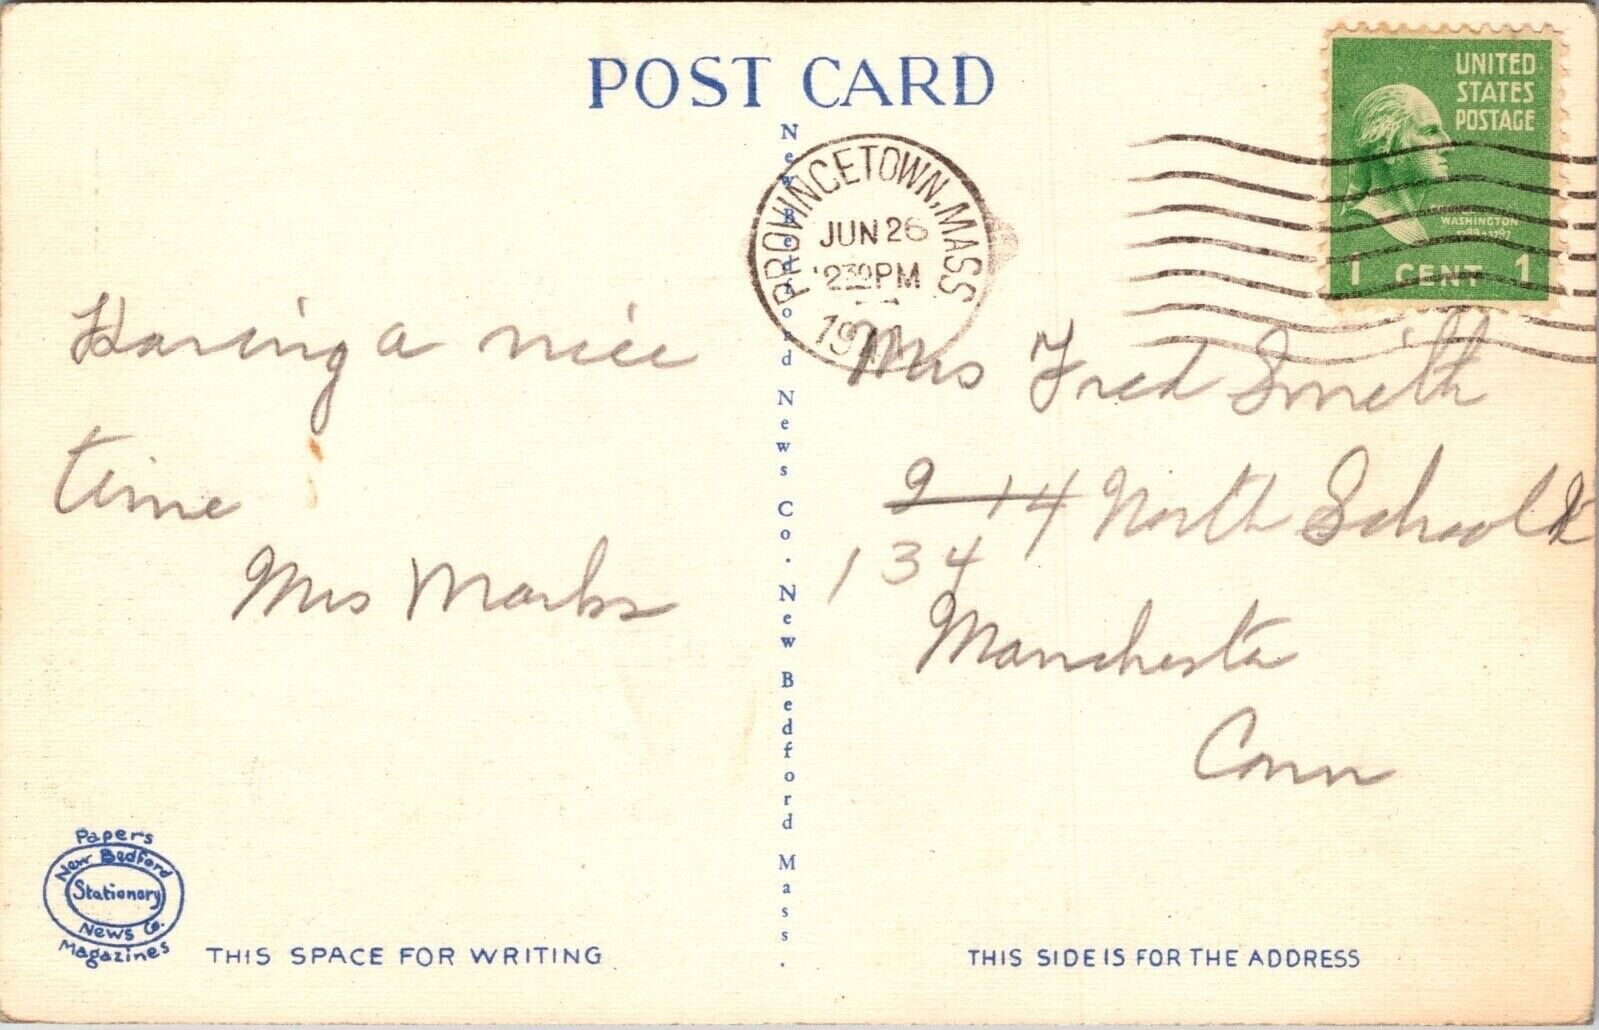 POST CARD
UNITED
STATES
POSTAGE
WASHINGTON
1789-1797
1 CENT 1
PROVINCETOWN, MASS
JUN 26
230PM
Having a nice
time
Mrs Marks
Mrs Fred Smith
9 14 North School
134
Manchester
Conn
New Bedford News Co. New Bedford Mass.
Papers
New Bedford
Stationary
News Co.
Magazines
THIS SPACE FOR WRITING
THIS SIDE IS FOR THE ADDRESS